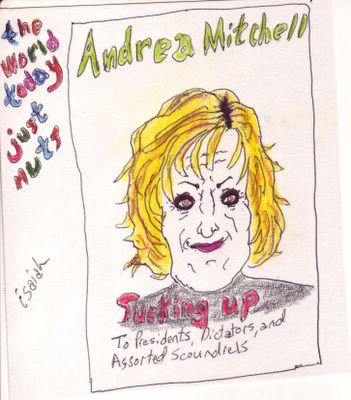 the
world
today
just
nuts
isaiah
Andrea Mitchell
Sucking up
To Presidents, Dictators, and
Assorted Scoundrels